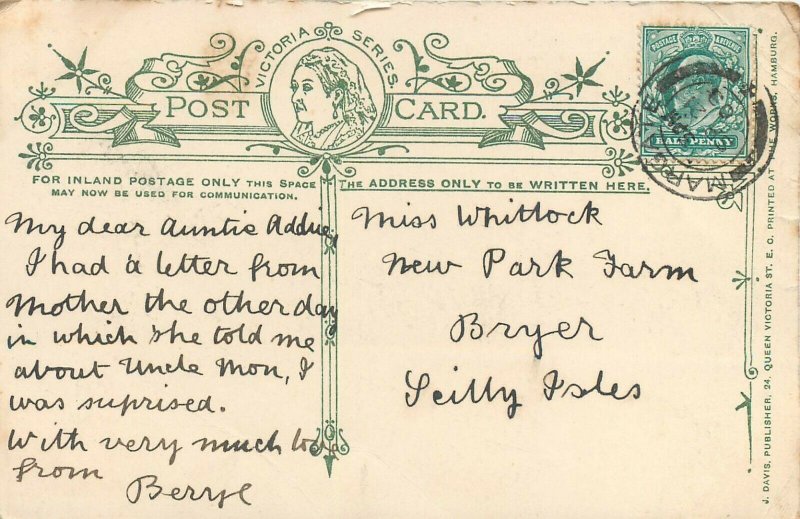 VICTORIA SERIES
POST CARD.
POSTAGE & REVENUE
HALF PENNY
MARGATE
FOR INLAND POSTAGE ONLY THIS SPACE
MAY NOW BE USED FOR COMMUNICATION.
THE ADDRESS ONLY TO BE WRITTEN HERE.
My dear Auntie Addie,
I had a letter from
Mother the other day
in which she told me
about Uncle Mon, I
was suprised.
With very much love
from
Beryl
Miss Whitlock
New Park Farm
Bryer
Scilly Isles
J. DAVIS, PUBLISHER, 24, QUEEN VICTORIA ST. E. C. PRINTED AT THE WORKS, HAMBURG.